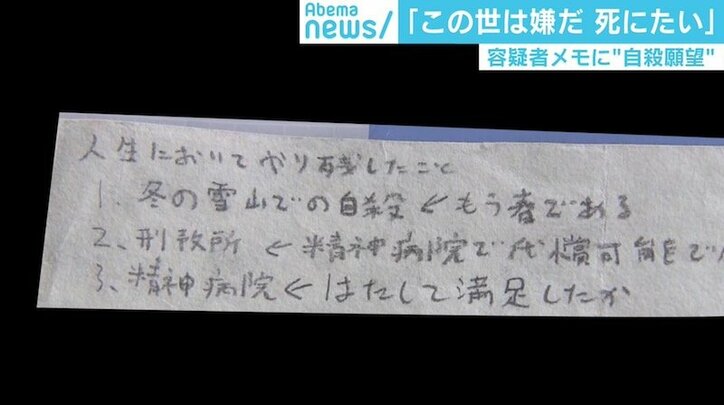 Abema
news/
「この世は嫌だ 死にたい」
容疑者メモに"自殺願望"
人生においてやり残したこと
1. 冬の雪山での自殺 ← もう春である
2. 刑務所 ← 精神病院で代償可能で
3. 精神病院 ← はたして満足したか